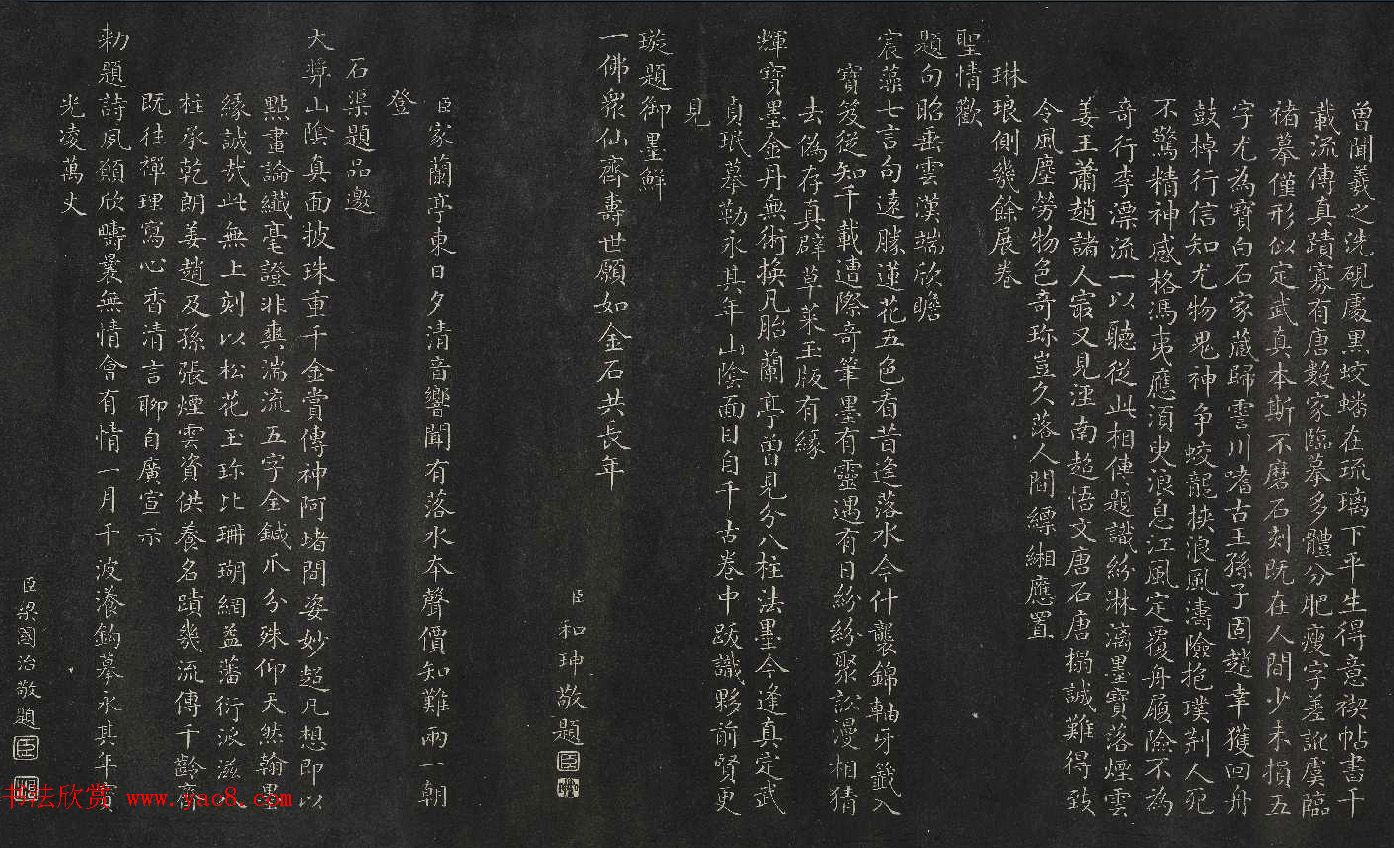 曾聞羲之洗硯處黑蛟蟠在琉璃下平生得意禊帖書千
載流傳真蹟寡有唐數家臨摹多體分肥瘦字差訛虞臨
褚摹僅形似定武真本斯不磨石刻既在人間少未損五
字尤為寶白石家藏歸霅川嗜古王孫子固趙幸獲回舟
鼓棹行信知尤物鬼神爭蛟龍挾浪風濤險抱璞荆人死
不驚精神感格馮夷應須臾浪息江風定覆舟履險不為
奇行李漂流一以聽從此相傳題識紛淋漓墨寶落煙雲
姜王蕭趙諸人寂又見淫南超悟文唐石唐搨誠難得致
令風塵勞物色奇珍豈久落人間縹緗應置
琳琅側幾餘展卷
聖情歡
題句昭垂雲漢端欣瞻
宸藻七言句遠勝蓮花五色看昔逢落水今什襲錦軸牙籤入
寶笈從知千載遭際奇筆墨有靈遇有日紛紛聚訟漫相猜
去偽存真闢草萊玉版有緣
輝寶墨金丹無術換凡胎蘭亭曾見分八柱法墨今逢真定武
貞珉摹勒永其年山陰面目自千古卷中跋識夥前賢更
見
璇題御墨鮮
一佛眾仙齊壽世願如金石共長年
臣和珅敬題
臣家蘭亭東日夕清音響聞有落水本聲價知難兩一朝
登
石渠題品邀
大弉山陰真面披珠重千金賞傳神阿堵間姿妙超凡想即以
點畫論纖毫證非爽湍流五字全鍼爪分殊仰天然翰墨
緣誠哉此無上刻以松花玉珍比珊瑚網益藩衍派滋八
柱承乾朗姜趙及孫張煙雲資供養名蹟幾流傳千齡
既往禪理寫心香清言聊自廣宣示
勅題詩夙願欣疇曩無情會有情一月千波瀁鈎摹永其年寶
光凌萬丈
臣梁國治敬題
书法欣赏 www.yac8.com